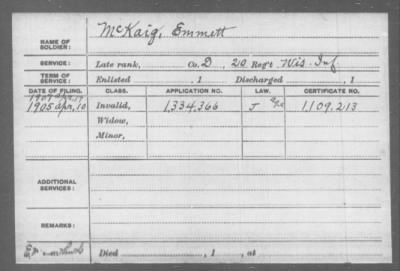 NAME OF SOLDIER: McKaig, Emmett
SERVICE: Late rank, Co. D, 20 Reg't Wis. Inf.
TERM OF SERVICE: Enlisted , 1 Discharged , 1
DATE OF FILING. CLASS. APPLICATION NO. LAW. CERTIFICATE NO.
1905 Apr, 10 Invalid, 1,334,366 J 1,109,213
Widow,
Minor,
ADDITIONAL SERVICES:
REMARKS:
Died , 1 , at